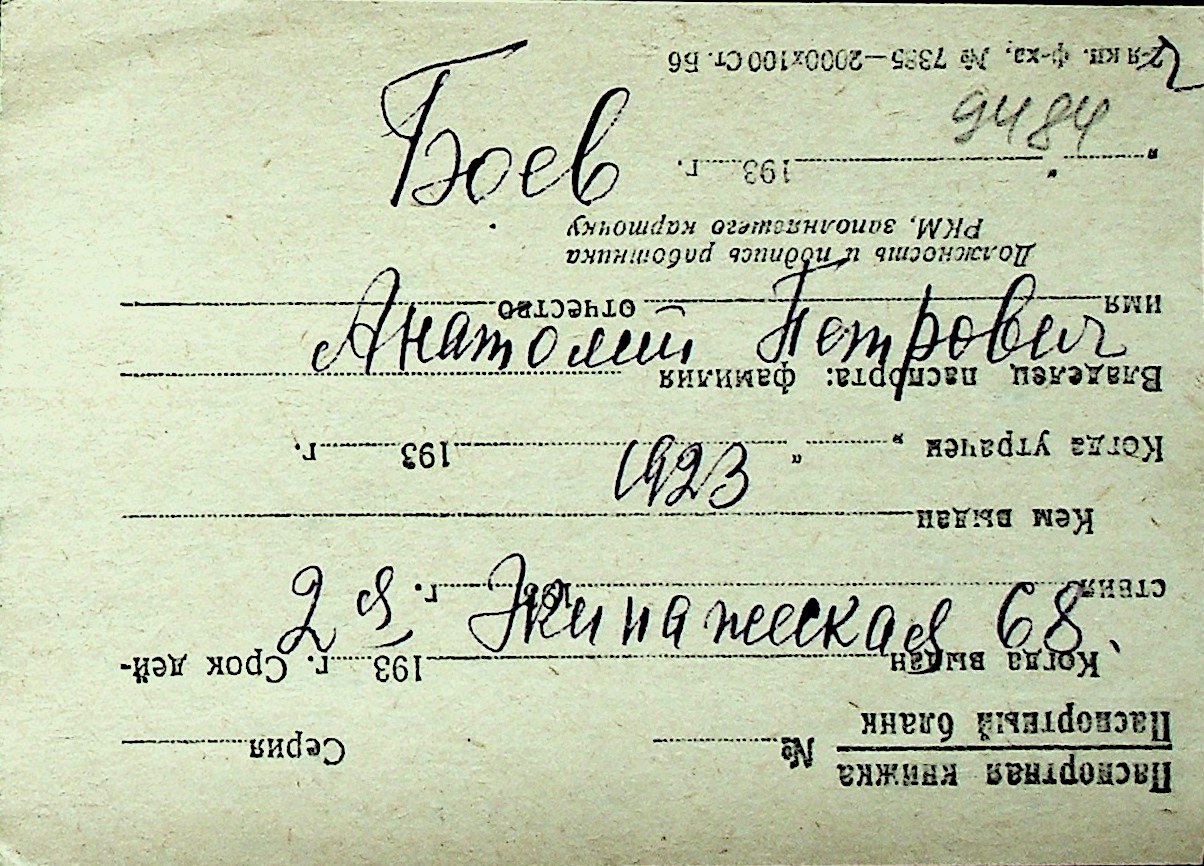 Боев
9484
Анатолий Петрович
1923
2я Экипажеская 68.
Паспортная книжка
Паспортный бланк
№ Серия
Когда выдан 193 г. Срок дей-
ствия 193 г.
Кем выдан
Когда утрачен „ “ 193 г.
Владелец паспорта: фамилия
имя отчество
Должность и подпись работника
РКМ, заполнявшего карточку
„ “ 193 г.
2-я кн. ф-ка, № 7385—2000х100 Ст. Б6